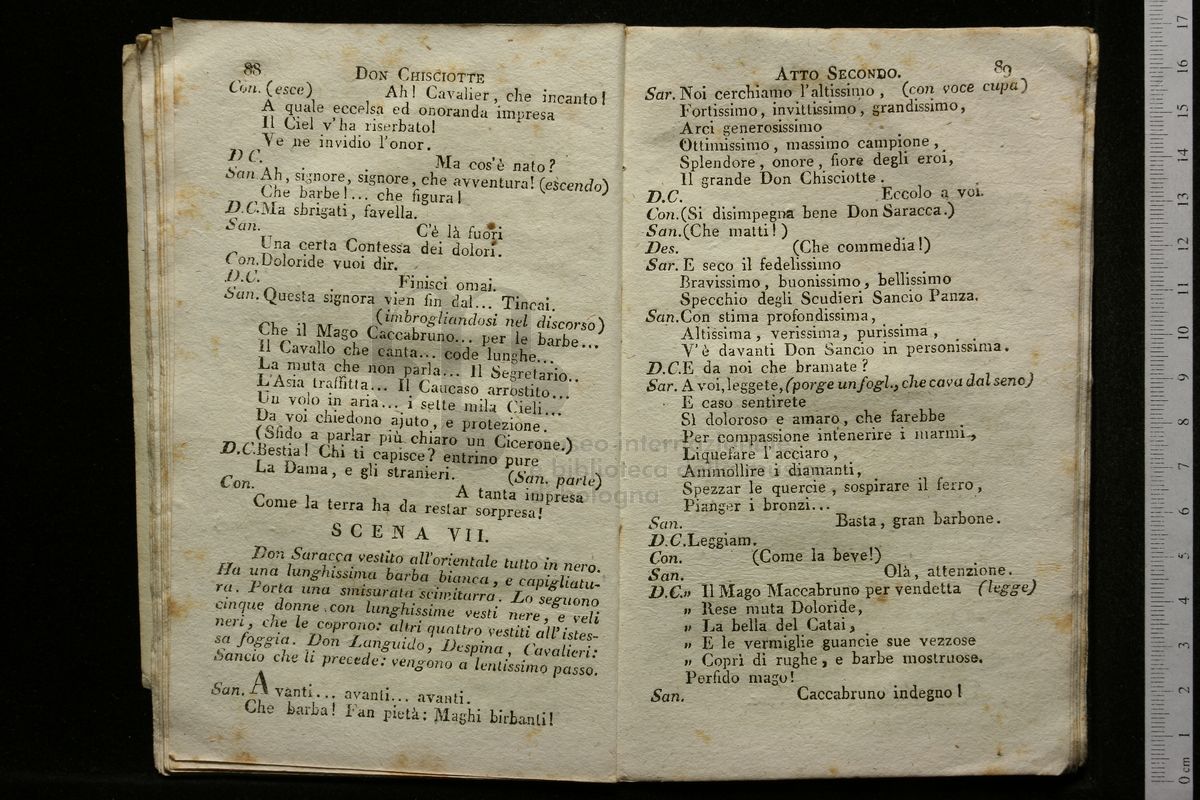 88
DON CHISCIOTTE
Con. (esce) Ah! Cavalier, che incanto!
A quale eccelsa ed onoranda impresa
Il Ciel v'ha riserbato!
Ve ne invidio l'onor.
D C. Ma cos'è nato?
San Ah, signore, signore, che avventura! (escendo)
Che barbe!... che figura!
D.C. Ma sbrigati, favella.
San. C'è là fuori
Una certa Contessa dei dolori.
Con. Doloride vuoi dir.
D.C. Finisci omai.
San. Questa signora vien fin dal... Tincai.
(imbrogliandosi nel discorso)
Che il Mago Caccabruno... per le barbe...
Il Cavallo che canta... code lunghe...
La muta che non parla... Il Segretario..
L'Asia traffitta... Il Caucaso arrostito...
Un volo in aria... i sette mila Cieli...
Da voi chiedono ajuto, e protezione.
(Sfido a parlar più chiaro un Cicerone.)
D.C. Bestia! Chi ti capisce? entrino pure
La Dama, e gli stranieri. (San. parte)
Con. A tanta impresa
Come la terra ha da restar sorpresa!
SCENA VII.
Don Saracca vestito all'orientale tutto in nero.
Ha una lunghissima barba bianca, e capigliatu-
ra. Porta una smisurata scimitarra. Lo seguono
cinque donne con lunghissime vesti nere, e veli
neri, che le coprono: altri quattro vestiti all'istes-
sa foggia. Don Languido, Despina, Cavalieri:
Sancio che li precede: vengono a lentissimo passo.
San. Avanti... avanti... avanti.
Che barba! Fan pietà: Maghi birbanti!
ATTO SECONDO. 89
Sar. Noi cerchiamo l'altissimo, (con voce cupa)
Fortissimo, invittissimo, grandissimo,
Arci generosissimo
Ottimissimo, massimo campione,
Splendore, onore, fiore degli eroi,
Il grande Don Chisciotte.
D.C. Eccolo a voi.
Con. (Si disimpegna bene Don Saracca.)
San. (Che matti!)
Des. (Che commedia!)
Sar. E seco il fedelissimo
Bravissimo, buonissimo, bellissimo
Specchio degli Scudieri Sancio Panza.
San. Con stima profondissima,
Altissima, verissima, purissima,
V'è davanti Don Sancio in personissima.
D.C. E da noi che bramate?
Sar. A voi, leggete, (porge un fogl., che cava dal seno)
E caso sentirete
Sì doloroso e amaro, che farebbe
Per compassione intenerire i marmi,
Liquefare l'acciaro,
Ammollire i diamanti,
Spezzar le quercie, sospirare il ferro,
Pianger i bronzi...
San. Basta, gran barbone.
D.C. Leggiam.
Con. (Come la beve!)
San. Olà, attenzione.
D.C. „ Il Mago Maccabruno per vendetta (legge)
„ Rese muta Doloride,
„ La bella del Catai,
„ E le vermiglie guancie sue vezzose
„ Coprì di rughe, e barbe mostruose.
Perfido mago!
San. Caccabruno indegno!